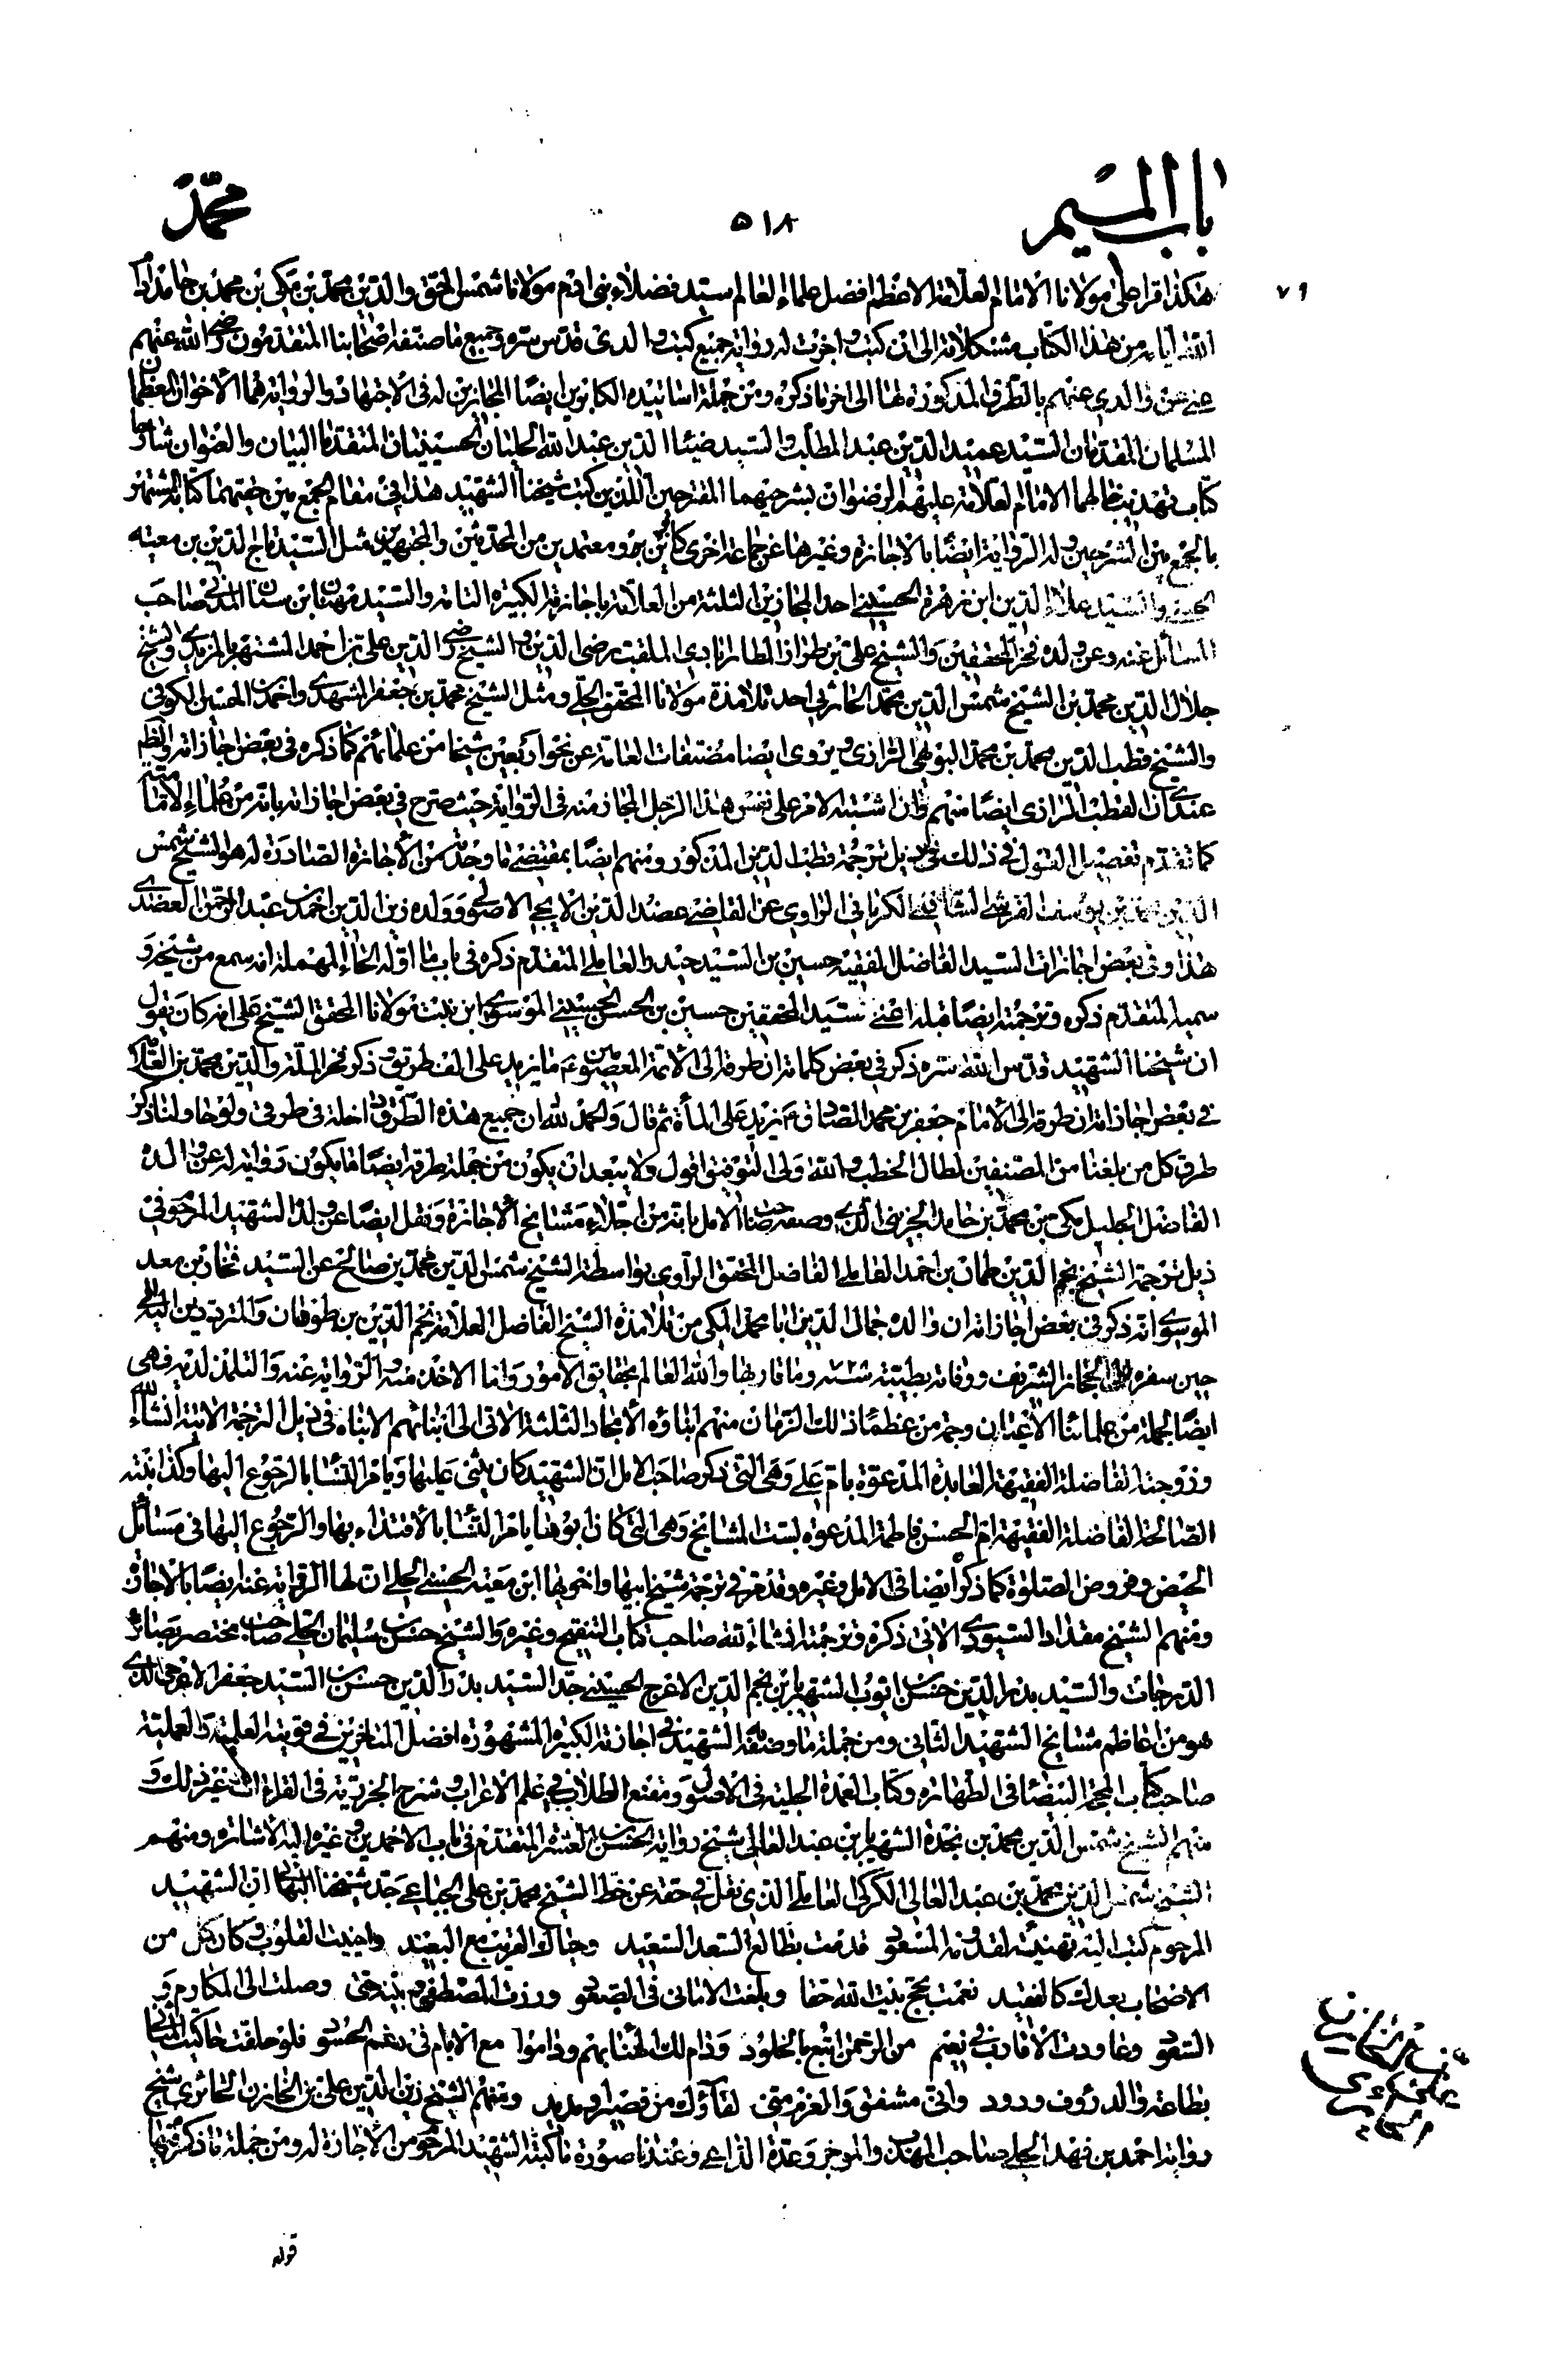 باب الميم
٥١٨
محمّد
٧٩
هكذا قرا علىّ مولانا الامام العلامة الاعظم افضل علماء العالم سيد فضلاء بنى ادم مولانا شمس الحق والدين محمد بن مكى بن محمد بن حامد ادام
الله ايامه من هذا الكتاب مشكلاته الى ان كتب واجزت له رواية جميع كتب والدى قدس سره وجميع ما صنفه اصحابنا المتقدمون رضى الله عنهم
عنى عن والدى عنهم بالطرق المذكورة لها الى اخر ما ذكره ومن جملة اساتيده الكابرين ايضًا المجازين له فى الاجتهاد والرواية هما الأخوان المعظمان
المسلمان المقدمان السيد عميد الدين عبد المطلب والسيد ضياء الدين عبد الله الحليان الحسينيان المتقدما البيان والعنوان شارحا
كتاب تهذيب خالهما الامام العلامة عليهم الرضوان بشرحيهما المقترحين اللذين كتب شيخنا الشهيد هذا فى مقام الجمع بين حقيهما كتابه المشتهر
بالجمع بين الشرحين وله الرواية ايضًا بالاجازة وغيرها عن جماعة اخرى كابرين بررة معتمدين من المحدثين والمجتهدين مثل السيد تاج الدين بن معيّة
الحسنى والسيد علاء الدين ابن زهرة الحسينى احد المجازين الثلثة من العلامة باجازته الكبيرة التامة والسيد مهنا بن سنان المدنى صاحب
المسائل عنه وعن ولده فخر المحققين والشيخ على بن طراز المطارابادى الملقب رضى الدين والشيخ رضى الدين على بن احمد المشتهر بالمزيدى والشيخ
جلال الدين محمد بن الشيخ شمس الدين محمد الحارثى احد تلامذة مولانا المحقق الحلى ومثل الشيخ محمد بن جعفر المشهدى واحمد بن الحسين الكوفى
والشيخ قطب الدين محمد بن محمد البويهى الرازى ويروى ايضا مصنفات العامة عن نحو اربعين شيخا من علمائهم كما ذكره فى بعض اجازاته والظاهر
عندى ان القطب الرازى ايضًا منهم وان اشتبه الامر على نفس هذا الرجل المجاز منه فى الرواية حيث صرح فى بعض اجازاته بانه من علماء الامامية
كما تقدم تفصيل القول فى ذلك فى ذيل ترجمة قطب الدين المذكور ومنهم ايضًا بمقتضى ما وجدته من الأجازة الصادرة له هو الشيخ شمس
الدين محمد بن يوسف القرشى الشافعى الكرمانى الراوى عن القاضى عضد الدين الايجى الاصولى وولده زين الدين احمد بن عبد الرحمن العضدى
هذا وفى بعض اجازات السيد الفاضل الفقيه حسين بن السيد حيدر العاملى المتقدم ذكره فى باب ما اوله الحاء المهملة انه سمع من شيخه و
سميه المتقدم ذكره وترجمته ايضًا قبله اعنى سيد المحققين حسين بن الحسن الحسينى الموسوى ابن بنت مولانا المحقق الشيخ على انه كان يقول
ان شيخنا الشهيد قدس الله سره ذكر فى بعض كلماته ان طرقه الى الأئمة المعصومين ع ما يزيد على الف طريق وذكر فخر الملة والدين محمد بن العلامة
فى بعض اجازاته ان طرقه الى الأمام جعفر بن محمد الصادق ع يزيد على المأة ثم قال والحمد لله ان جميع هذه الطرق داخلة فى طرقى ولو حاولنا ذكر
طرق كل من بلغنا من المصنفين لطال الخطب والله ولى التوفيق اقول ولا يبعد ان يكون من جملة طرقه ايضًا ما يكون روايته له عن والده
الفاضل الجليل مكى بن محمد بن حامد الجزينى الذى وصفه صاحب الامل بانه من اجلاء مشايخ الأجازة ونقل ايضًا عن ولده الشهيد المرحوم فى
ذيل ترجمة الشيخ نجم الدين طمان بن احمد العاملى الفاضل المحقق الراوى بواسطة الشيخ شمس الدين محمد بن صالح عن السيد فخار بن معد
الموسوى انه ذكر فى بعض اجازاته ان والده جمال الدين ابا محمد المكى من تلامذة الشيخ الفاضل العلامة نجم الدين بن طومان والمترددين اليه الى
حين سفره الى الحجاز الشريف ووفاته بطيبة سنة ٧٢٨ وما قاربها والله العالم بحقايق الامور وامّا الاخذ منه والرواية عنه والتلمذ لديه فهى
ايضًا لجملة من علمائنا الأعيان وجمة من عظماء ذلك الزمان منهم ابناؤه الأمجاد الثلثة الاتى الى ابنائهم الانباه فى ذيل الترجمة الاتية انشاء الله
وزوجته الفاضلة الفقيهة العابدة المدعوة بام على وهى التى ذكر صاحب الامل ان الشهيد كان يثنى عليها ويامر النساء بالرجوع اليها وكذا بنته
الصالحة الفاضلة الفقيهة ام الحسن فاطمة المدعوة بست المشايخ وهى التى كان ابوها يامر النساء بالأقتداء بها والرجوع اليها فى مسائل
الحيض وفروض الصلوة كما ذكر ايضا فى الامل وغيره وقد مر فى ترجمة شيخ ابيها واخويها ابن معية الحسنى الحلى ان لها الرواية عنه ايضًا بالاجازة
ومنهم الشيخ مقداد السيورى الاتى ذكره وترجمته انشاء الله صاحب كتاب التنقيح وغيره والشيخ حسن بن سليمان الحلى صاحب مختصر بصائر
الدرجات والسيد بدر الدين حسن بن ايوب الشهير بابن نجم الدين الاعرج الحسينى جد السيد بدر الدين حسن بن السيد جعفر الاعرجى الذى
هو من اعاظم مشايخ الشهيد الثانى ومن جملة ما وصفه به الشهيد فى اجازته الكبيرة المشهورة افضل المتاخرين فى قوتيه العلمية والعملية
صاحب كتاب المحجة البيضاء فى الطهارة وكتاب العمدة الجلية فى الاصول ومقنع الطلاب فى علم الاعراب وشرح الجزرية فى القراءة الى غير ذلك و
منهم الشيخ شمس الدين محمد بن نجدة الشهير بابن عبد العالى شيخ رواية الحسن بن العشرة المتقدم فى باب الاحمدين وغيره اليه الأشارة ومنهم
الشيخ شمس الدين محمد بن عبد العالى الكركى العاملى الذى نقل فى حقه عن خط الشيخ محمد بن على الجباعى جد شيخنا البهائى ان الشهيد
المرحوم كتب اليه تهنيئة لقدومه المسعود قدمت بطالع السعد السعيد وحياك القريب مع البعيد واحييت القلوب وكان كل من
الاصحاب بعدك كالفقيد نعمت بحج بيت الله حقا وبلغت الامانى فى الصعود وزرت المصطفى وبنيه حتى وصلت الى المكارم و
السعود وعاودت الأقارب فى نعيم من الرحمن اتبع بالخلود ودام لك الهنا بهم وداموا مع الايام فى رغم الحسود فلو حلفت
بطاعة والد رؤوف ودود وانى مشفق والعزم منى لقاؤك من قصيد ومنهم الشيخ زين الدين على بن الخازن الحائرى شيخ
رواية احمد بن فهد الحلى صاحب المهذب والموجز وعدة الداعى وعندنا صورة ما كتبه الشهيد المرحوم من الأجازة له ومن جملة ما ذكر فيها
قوله